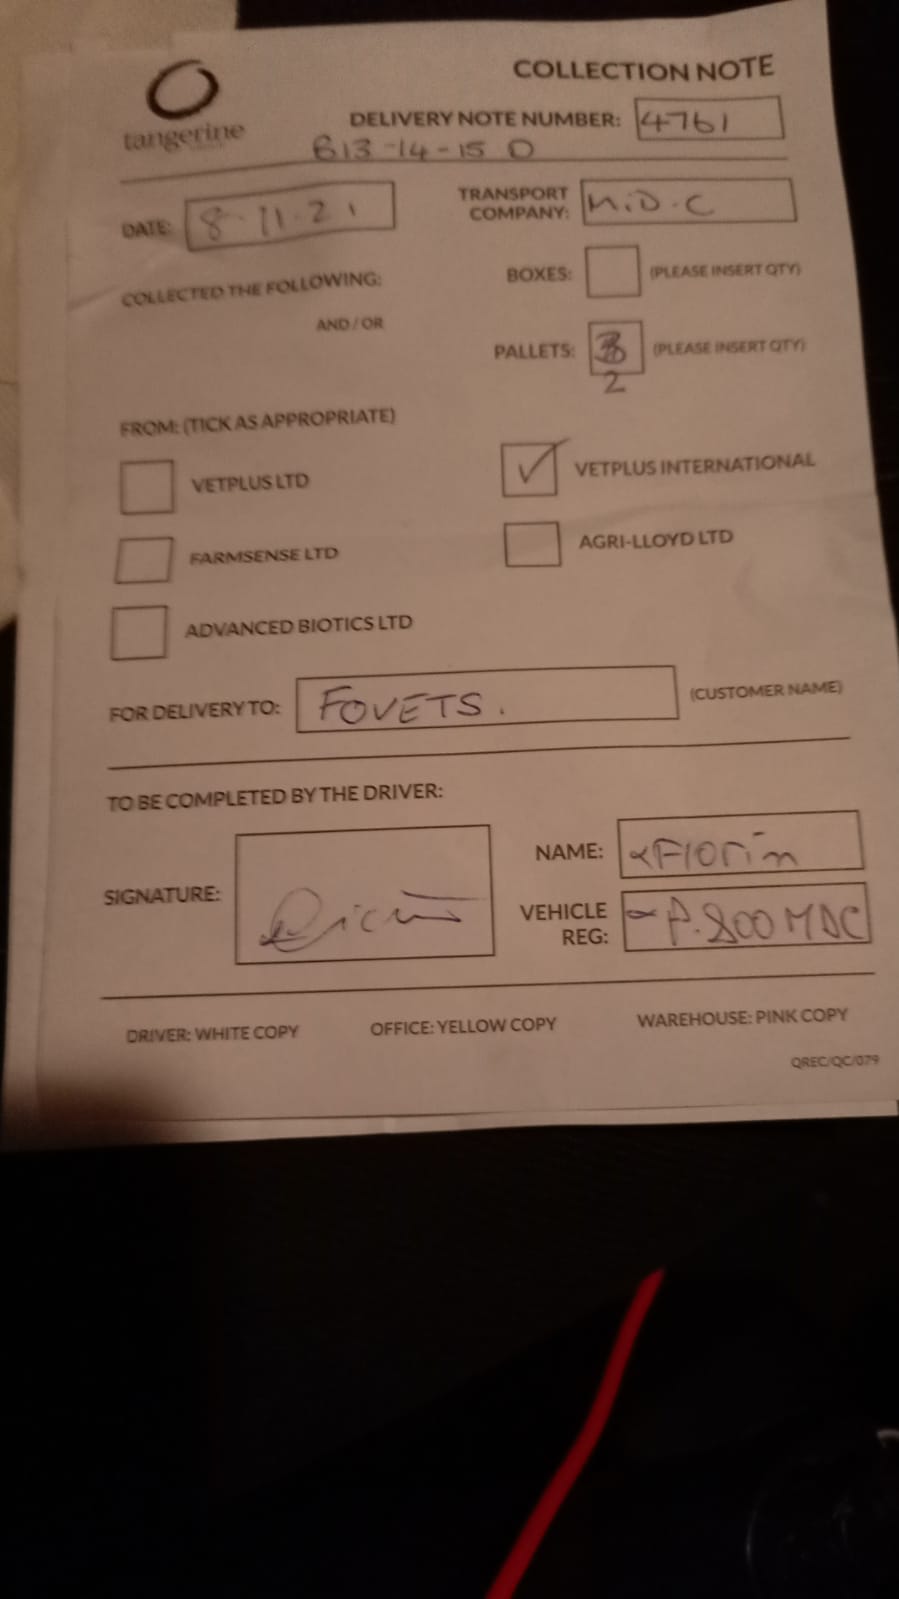 COLLECTION NOTE
tangerine
DELIVERY NOTE NUMBER: 4761
613-14-15 O
DATE: 8-11-21
TRANSPORT COMPANY: M.D.C
COLLECTED THE FOLLOWING:
BOXES: (PLEASE INSERT QTY)
AND/OR
PALLETS: (PLEASE INSERT QTY)
2
FROM: (TICK AS APPROPRIATE)
VETPLUS LTD
VETPLUS INTERNATIONAL
FARMSENSE LTD
AGRI-LLOYD LTD
ADVANCED BIOTICS LTD
FOR DELIVERY TO: FOVETS. (CUSTOMER NAME)
TO BE COMPLETED BY THE DRIVER:
SIGNATURE:
NAME: Florin
VEHICLE REG: P.800 MDC
DRIVER: WHITE COPY
OFFICE: YELLOW COPY
WAREHOUSE: PINK COPY
QREC/QC/079